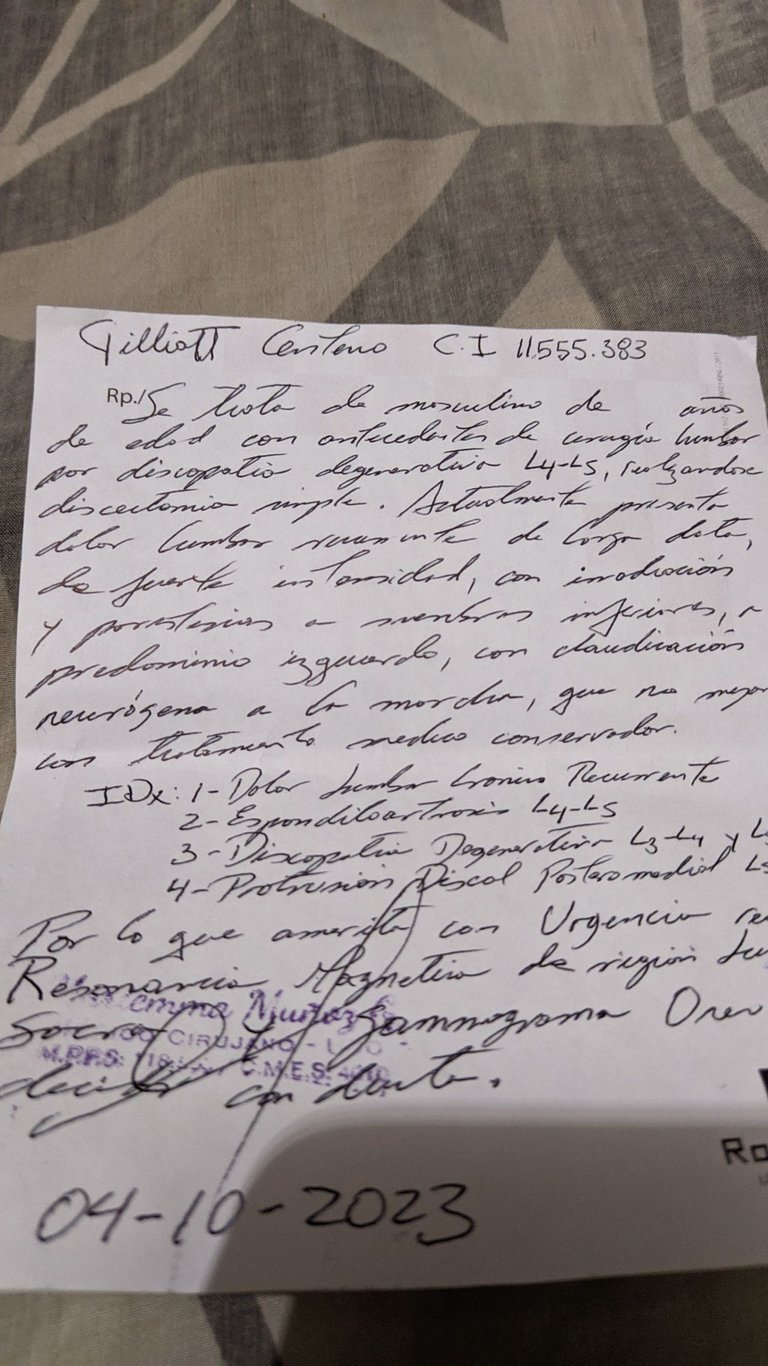 Gilliott Centeno C.I 11.555.383
Rp./ Se trata de masculino de años
de edad con antecedentes de cirugía lumbar
por discopatia degenerativa L4-L5, realizandose
discectomia simple. Actualmente presenta
dolor lumbar recurrente de larga data,
de fuerte intensidad, con irradiación
y parestesias a miembros inferiores, a
predominio izquierdo, con claudicación
neurógena a la marcha, que no mejor
con tratamiento medico conservador.
IDx: 1- Dolor Lumbar Cronico Recurrente
2- Espondiloartrosis L4-L5
3- Discopatia Degenerativa L3-L4 y
4- Protrusión Discal Posteromedial
Por lo que amerita con Urgencia
Resonancia Magnetica de región
Socra y Gammagrama Oseo
Muñoz
CIRUJANO
M.P.P.S. C.M.E.S.
decidir conducta.
Ro
04-10-2023